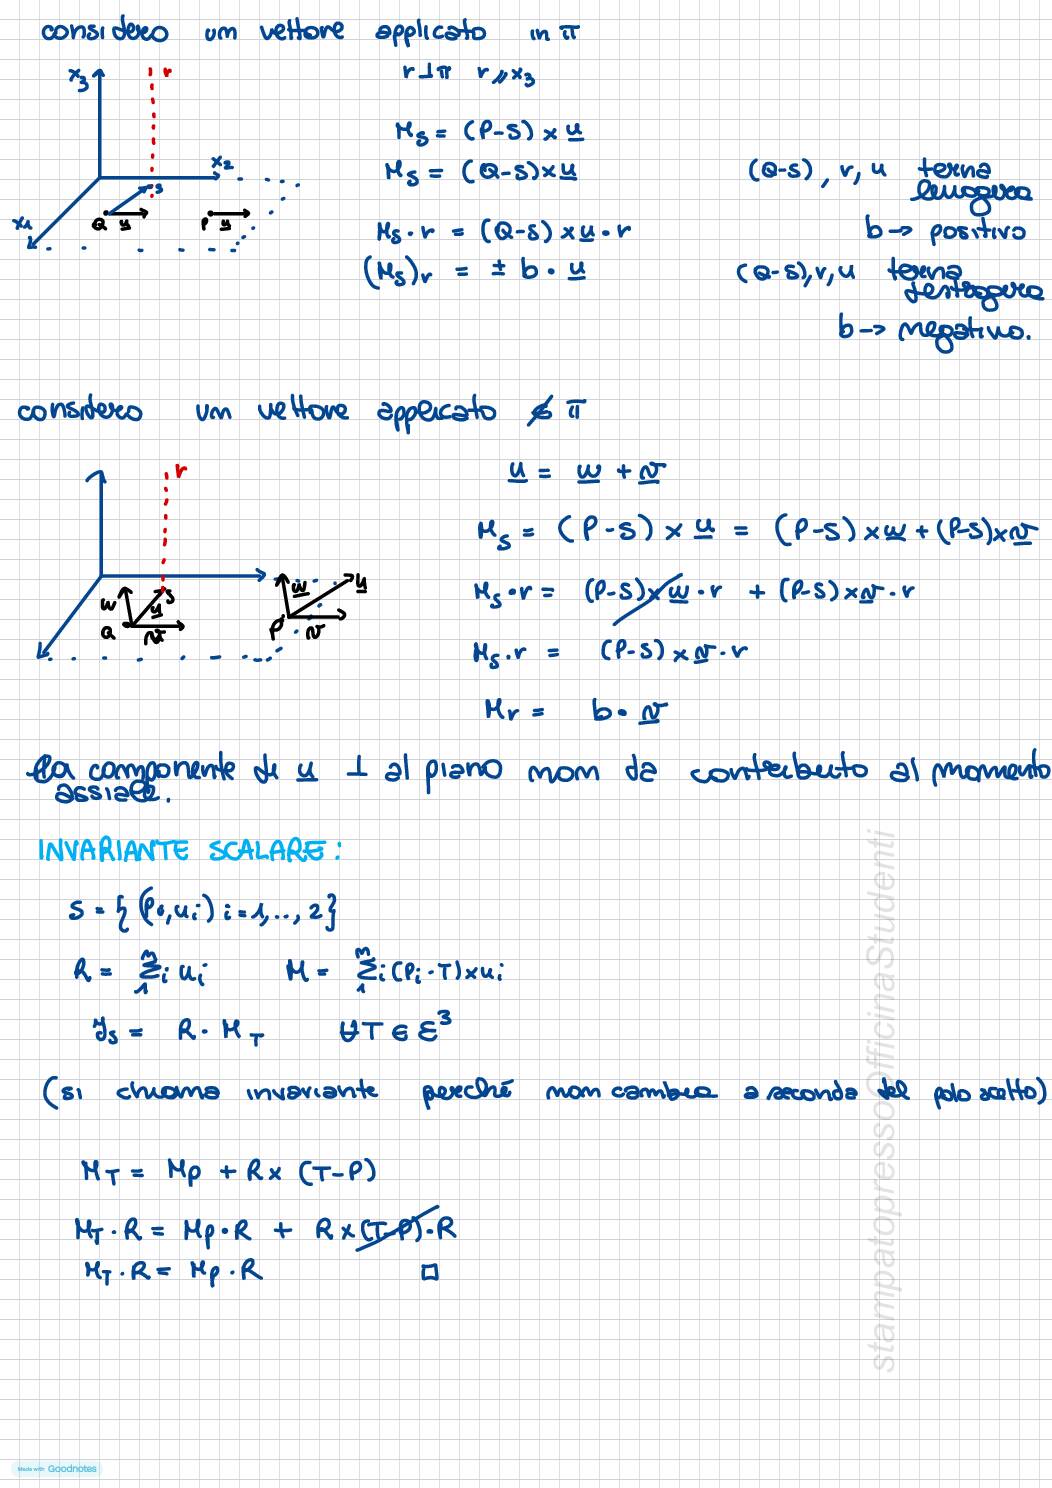 considero un vettore applicato in π
r⊥π r//x₃
x₃
r
x₂
s
x₁
Q u
P u
M_s = (P-S) × u
M_s = (Q-S) × u
M_s · r = (Q-S) × u · r
(M_s)_r = ± b · u
(Q-S), r, u terna levogera
b → positivo
(Q-S), r, u terna destrogera
b → negativo.
considero un vettore applicato ∉ π
r
w
u
s
Q
v
w
u
P
v
u = w + v
M_s = (P-S) × u = (P-S) × w + (P-S) × v
M_s · r = (P-S) × w · r + (P-S) × v · r
M_s · r = (P-S) × v · r
M_r = b · v
la componente di u ⊥ al piano non da contributo al momento
assiale.
INVARIANTE SCALARE:
S = { (P_i, u_i) i = 1, .., 2 }
R = Σ₁ⁿ i u_i M = Σ₁ⁿ i (P_i - T) × u_i
Y_s = R · M_T ∀T ∈ ε³
(si chiama invariante perché non cambia a seconda del polo scelto)
M_T = M_P + R × (T-P)
M_T · R = M_P · R + R × (T-P) · R
M_T · R = M_P · R □
stampatopressoOfficinaStudenti
Made with Goodnotes